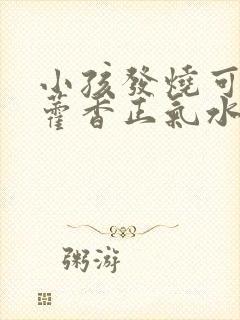 小孩發燒可
藿香正氣水
粥游